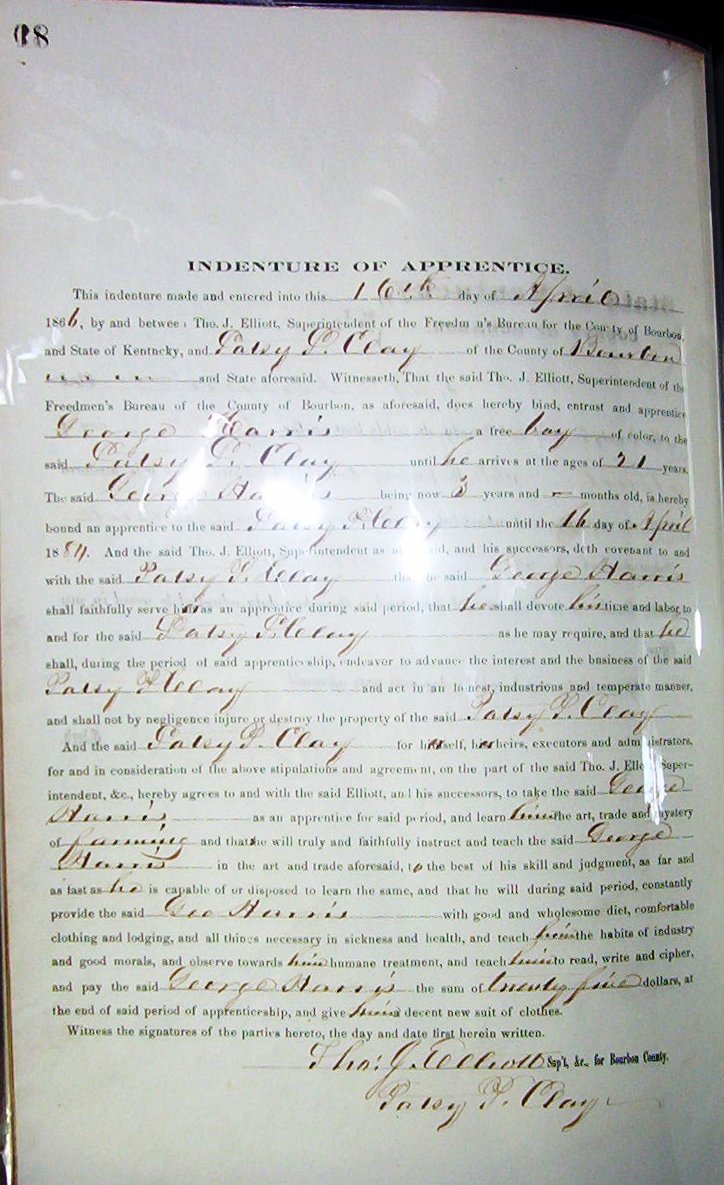 68
INDENTURE OF APPRENTICE.
This indenture made and entered into this 16th day of April
1866, by and between Tho. J. Elliott, Superintendent of the Freedmen's Bureau for the County of Bourbon,
and State of Kentucky, and Patsy P. Clay of the County of Bourbon
and State aforesaid. Witnesseth, That the said Tho. J. Elliott, Superintendent of the
Freedmen's Bureau of the County of Bourbon, as aforesaid, does hereby bind, entrust and apprentice
George Harris a free boy of color, to the
said Patsy P. Clay until he arrives at the ages of 21 years.
The said George Harris being now 3 years and - months old, is hereby
bound an apprentice to the said Patsy P. Clay until the day of April
1884. And the said Tho. J. Elliott, Superintendent as aforesaid, and his successors, doth covenant to and
with the said Patsy P. Clay that the said George Harris
shall faithfully serve her as an apprentice during said period, that he shall devote his time and labor to
and for the said Patsy P. Clay as he may require, and that he
shall, during the period of said apprenticeship, endeavor to advance the interest and the business of the said
Patsy P. Clay and act in an honest, industrious and temperate manner,
and shall not by negligence injure or destroy the property of the said Patsy P. Clay
And the said Patsy P. Clay for herself, her heirs, executors and administrators,
for and in consideration of the above stipulations and agreement, on the part of the said Tho. J. Elliott Super-
intendent, &c., hereby agrees to and with the said Elliott, and his successors, to take the said George
Harris as an apprentice for said period, and learn him the art, trade and mystery
of farming and that she will truly and faithfully instruct and teach the said George
Harris in the art and trade aforesaid, to the best of his skill and judgment, as far and
as fast as he is capable of or disposed to learn the same, and that he will during said period, constantly
provide the said Geo Harris with good and wholesome diet, comfortable
clothing and lodging, and all things necessary in sickness and health, and teach him the habits of industry
and good morals, and observe towards him humane treatment, and teach him to read, write and cipher,
and pay the said George Harris the sum of twenty five dollars, at
the end of said period of apprenticeship, and give him a decent new suit of clothes.
Witness the signatures of the parties hereto, the day and date first herein written.
Tho. J. Elliott Sup't, &c., for Bourbon County.
Patsy P. Clay